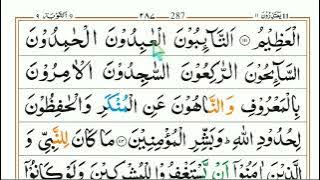 يعتذرون ١١ ٢٨٧ 287 التوبة ٩
الْعَظِيْمُ ﴿١١١﴾ اَلتَّآئِبُوْنَ الْعٰبِدُوْنَ الْحٰمِدُوْنَ
السَّآئِحُوْنَ الرّٰكِعُوْنَ السّٰجِدُوْنَ الْاٰمِرُوْنَ
بِالْمَعْرُوْفِ وَالنَّاهُوْنَ عَنِ الْمُنْكَرِ وَالْحٰفِظُوْنَ
لِحُدُوْدِ اللّٰهِ ؕ وَبَشِّرِ الْمُؤْمِنِيْنَ ﴿١١٢﴾ مَا كَانَ لِلنَّبِيِّ وَ
الَّذِيْنَ اٰمَنُوْٓا اَنْ يَّسْتَغْفِرُوْا لِلْمُشْرِكِيْنَ وَلَوْ كَانُوْٓا